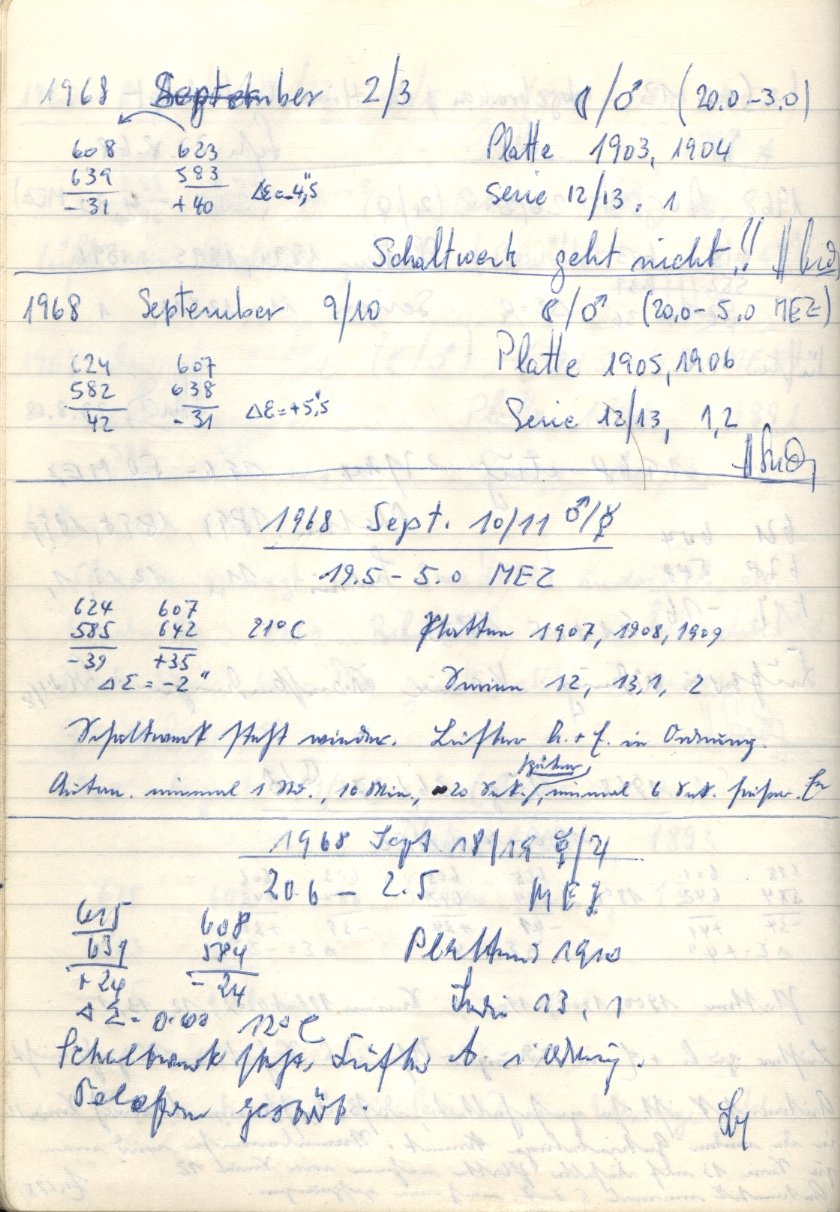 1968 September 2/3 ☾/♂ (20.0-3.0)
608 623 Platte 1903, 1904
639 583 ΔE=-4",5 Serie 12/13, 1
-31 +40
Schaltwerk geht nicht!!
1968 September 9/10 ☾/♂ (20.0-5.0 MEZ)
624 607 Platte 1905, 1906
582 638 ΔE=+5",5 Serie 12/13, 1,2
42 -31
1968 Sept. 10/11 ♂/☿
19.5-5.0 MEZ
624 607
585 642 21°C Platten 1907, 1908, 1909
-39 +35
ΔΣ=-2" Serien 12, 13, 1, 2
Schaltwerk steht wieder. Lüfter A.+E. in Ordnung.
später
minimal 1 Std., 10 Min., 20 Sek., minimal 6 Sek. früher.
1968 Sept. 18/19 ☿/♃
20.6 - 2.5 MEZ
615 608
639 584 Platten 1910
+24 -24
ΔΣ=0.00 12°C Serie 13, 1
Schaltwerk steht, Lüfter A. i. Ordnung.
Telefon gestört.
Ly